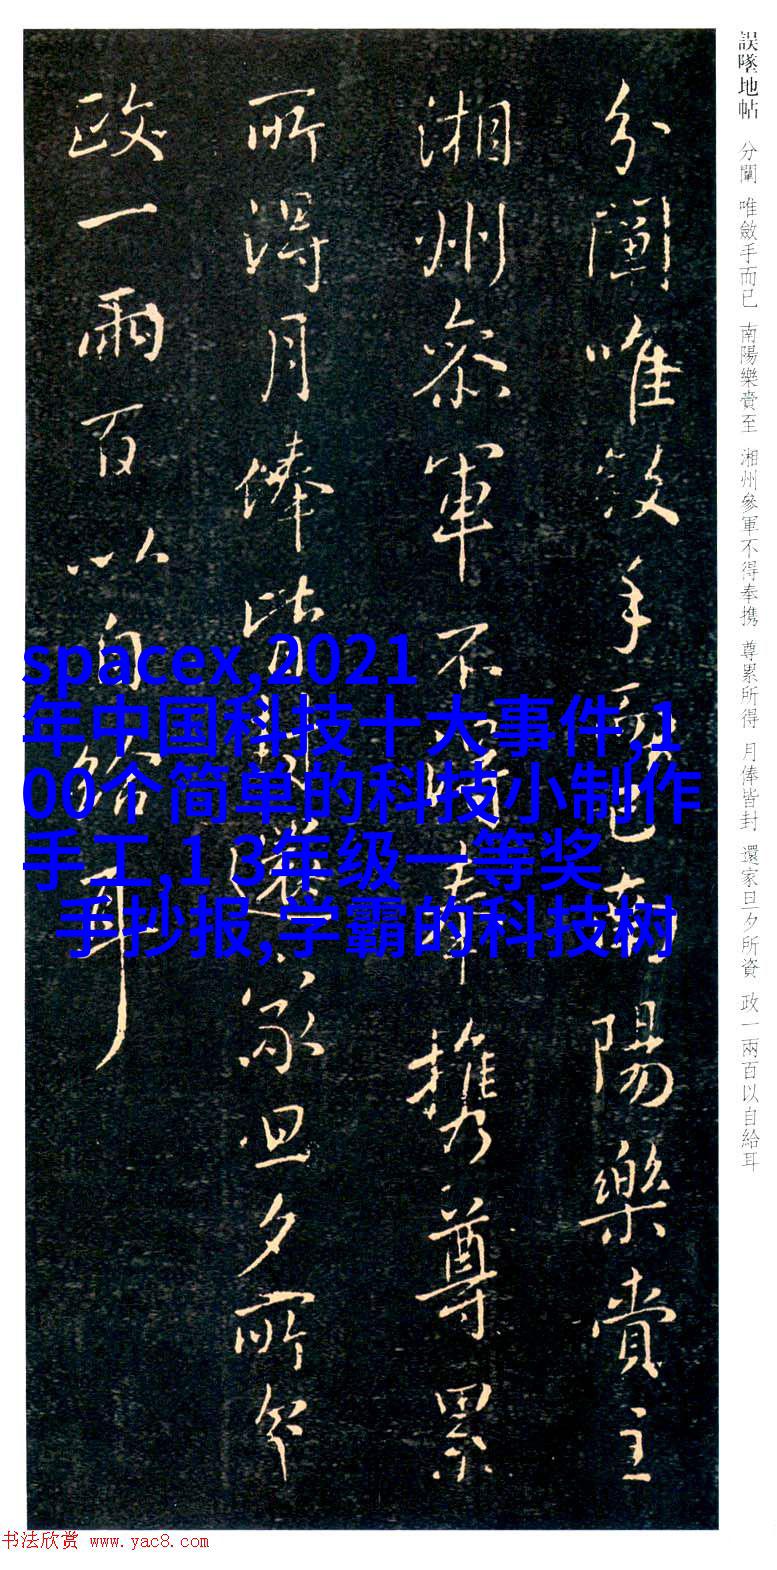 誤墜地帖 分闡 唯斂手而已 南陽樂賞至 湘州參軍不得奉携 尊累所得 月俸皆封 還家旦夕所資 政一兩百以自給耳
分闡唯斂手而已南陽樂賞至
湘州參軍不得奉携尊累
所得月俸皆封還家旦夕所資
政一兩百以自給耳
spacex,2021
年中国科技十大事件,1
00个简单的科技小制作
手工,1 3年级一等奖
手抄报,学霸的科技树
书法欣赏 www.yac8.com